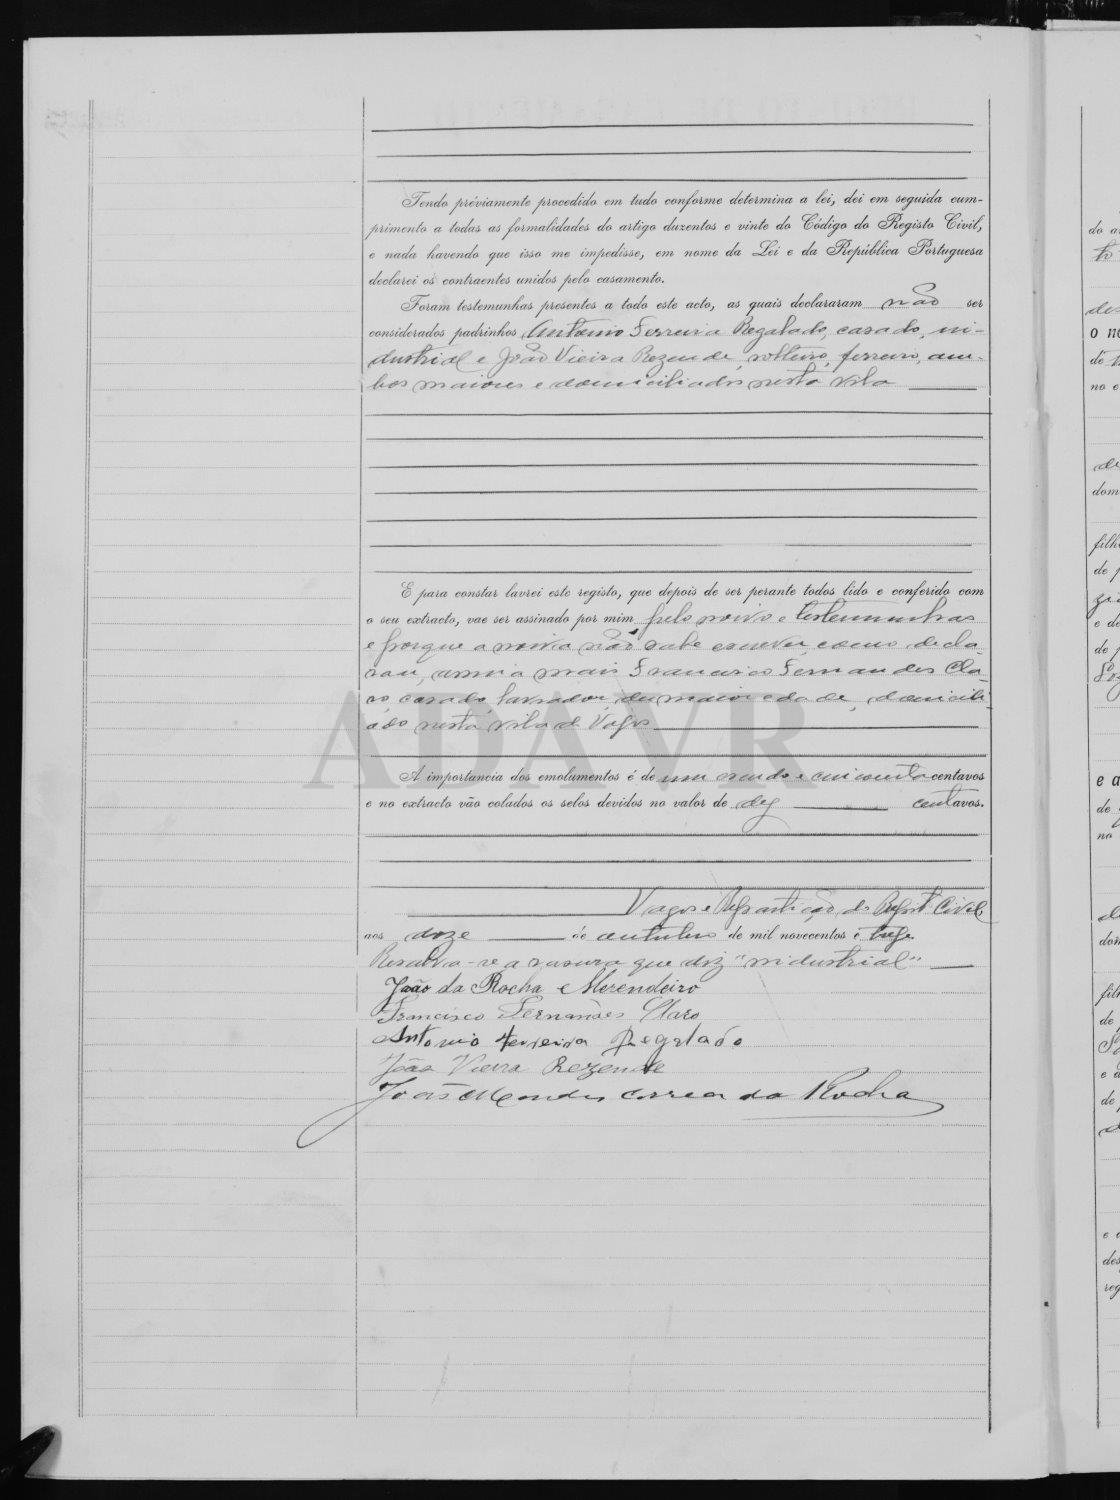 Tendo préviamente procedido em tudo conforme determina a lei, dei em seguida cum-
primento a todas as formalidades do artigo duzentos e vinte do Código do Registo Civil,
e nada havendo que isso me impedisse, em nome da Lei e da República Portuguesa
declarei os contraentes unidos pelo casamento.
Foram testemunhas presentes a todo este acto, as quais declararam não ser
considerados padrinhos Antonio Ferreira Regalado, casado, in-
dustrial e João Vieira Rezende, solteiro, ferreiro, am-
bos maiores e domiciliados nesta vila
E para constar lavrei este registo, que depois de ser perante todos lido e conferido com
o seu extracto, vae ser assinado por mim pelo noivo e testemunhas
e porque a noiva não sabe escrever como decla-
rou, assina mais Francisco Fernandes Cla-
ro, casado, lavrador, de maior edade, domicili-
ado nesta vila de Vagos
ADAVR
A importancia dos emolumentos é de um escudo e cincoenta centavos
e no extracto vão colados os selos devidos no valor de dez centavos.
Vagos e Repartição do Registo Civil
aos doze de outubro de mil novecentos e treze
Resalva-se a rasura que diz "industrial"
João da Rocha e Merendeiro
Francisco Fernandes Claro
Antonio Ferreira Regalado
João Vieira Rezende
João Mendes Correa da Rocha
do
o no
no e
dom
filh
de p
e de
de p
e a
de
no
don
fil
de
e a
de
e
des
reg